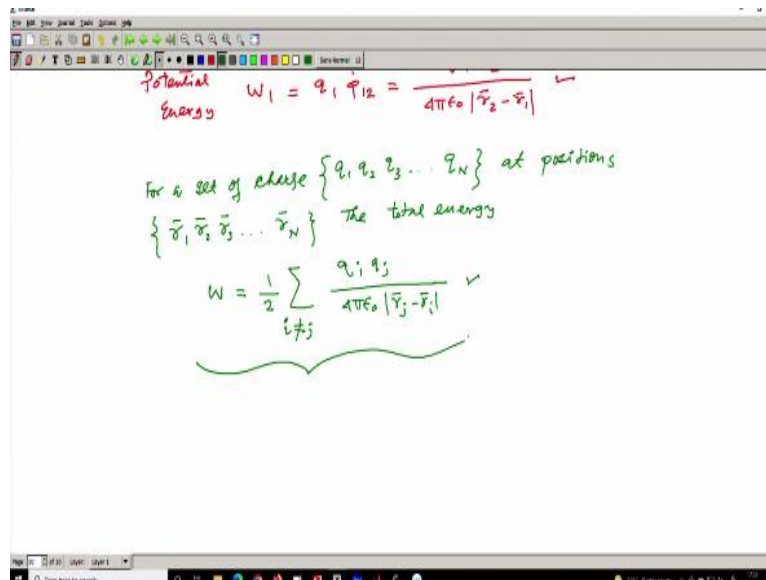 File Edit View Journal Tools Options Help
Sans Normal 12
Potential Energy W₁ = q₁ φ₁₂ = / 4πϵ₀ |r̄₂ - r̄₁| ✓
For a set of charge {q₁ q₂ q₃ ... q_N} at positions
{r̄₁ r̄₂ r̄₃ ... r̄_N} The total energy
W = 1/2 ∑_{i≠j} q_i q_j / 4πϵ₀ |r̄_j - r̄_i| ✓
Page of 10 Layer: Layer 1
Type here to search